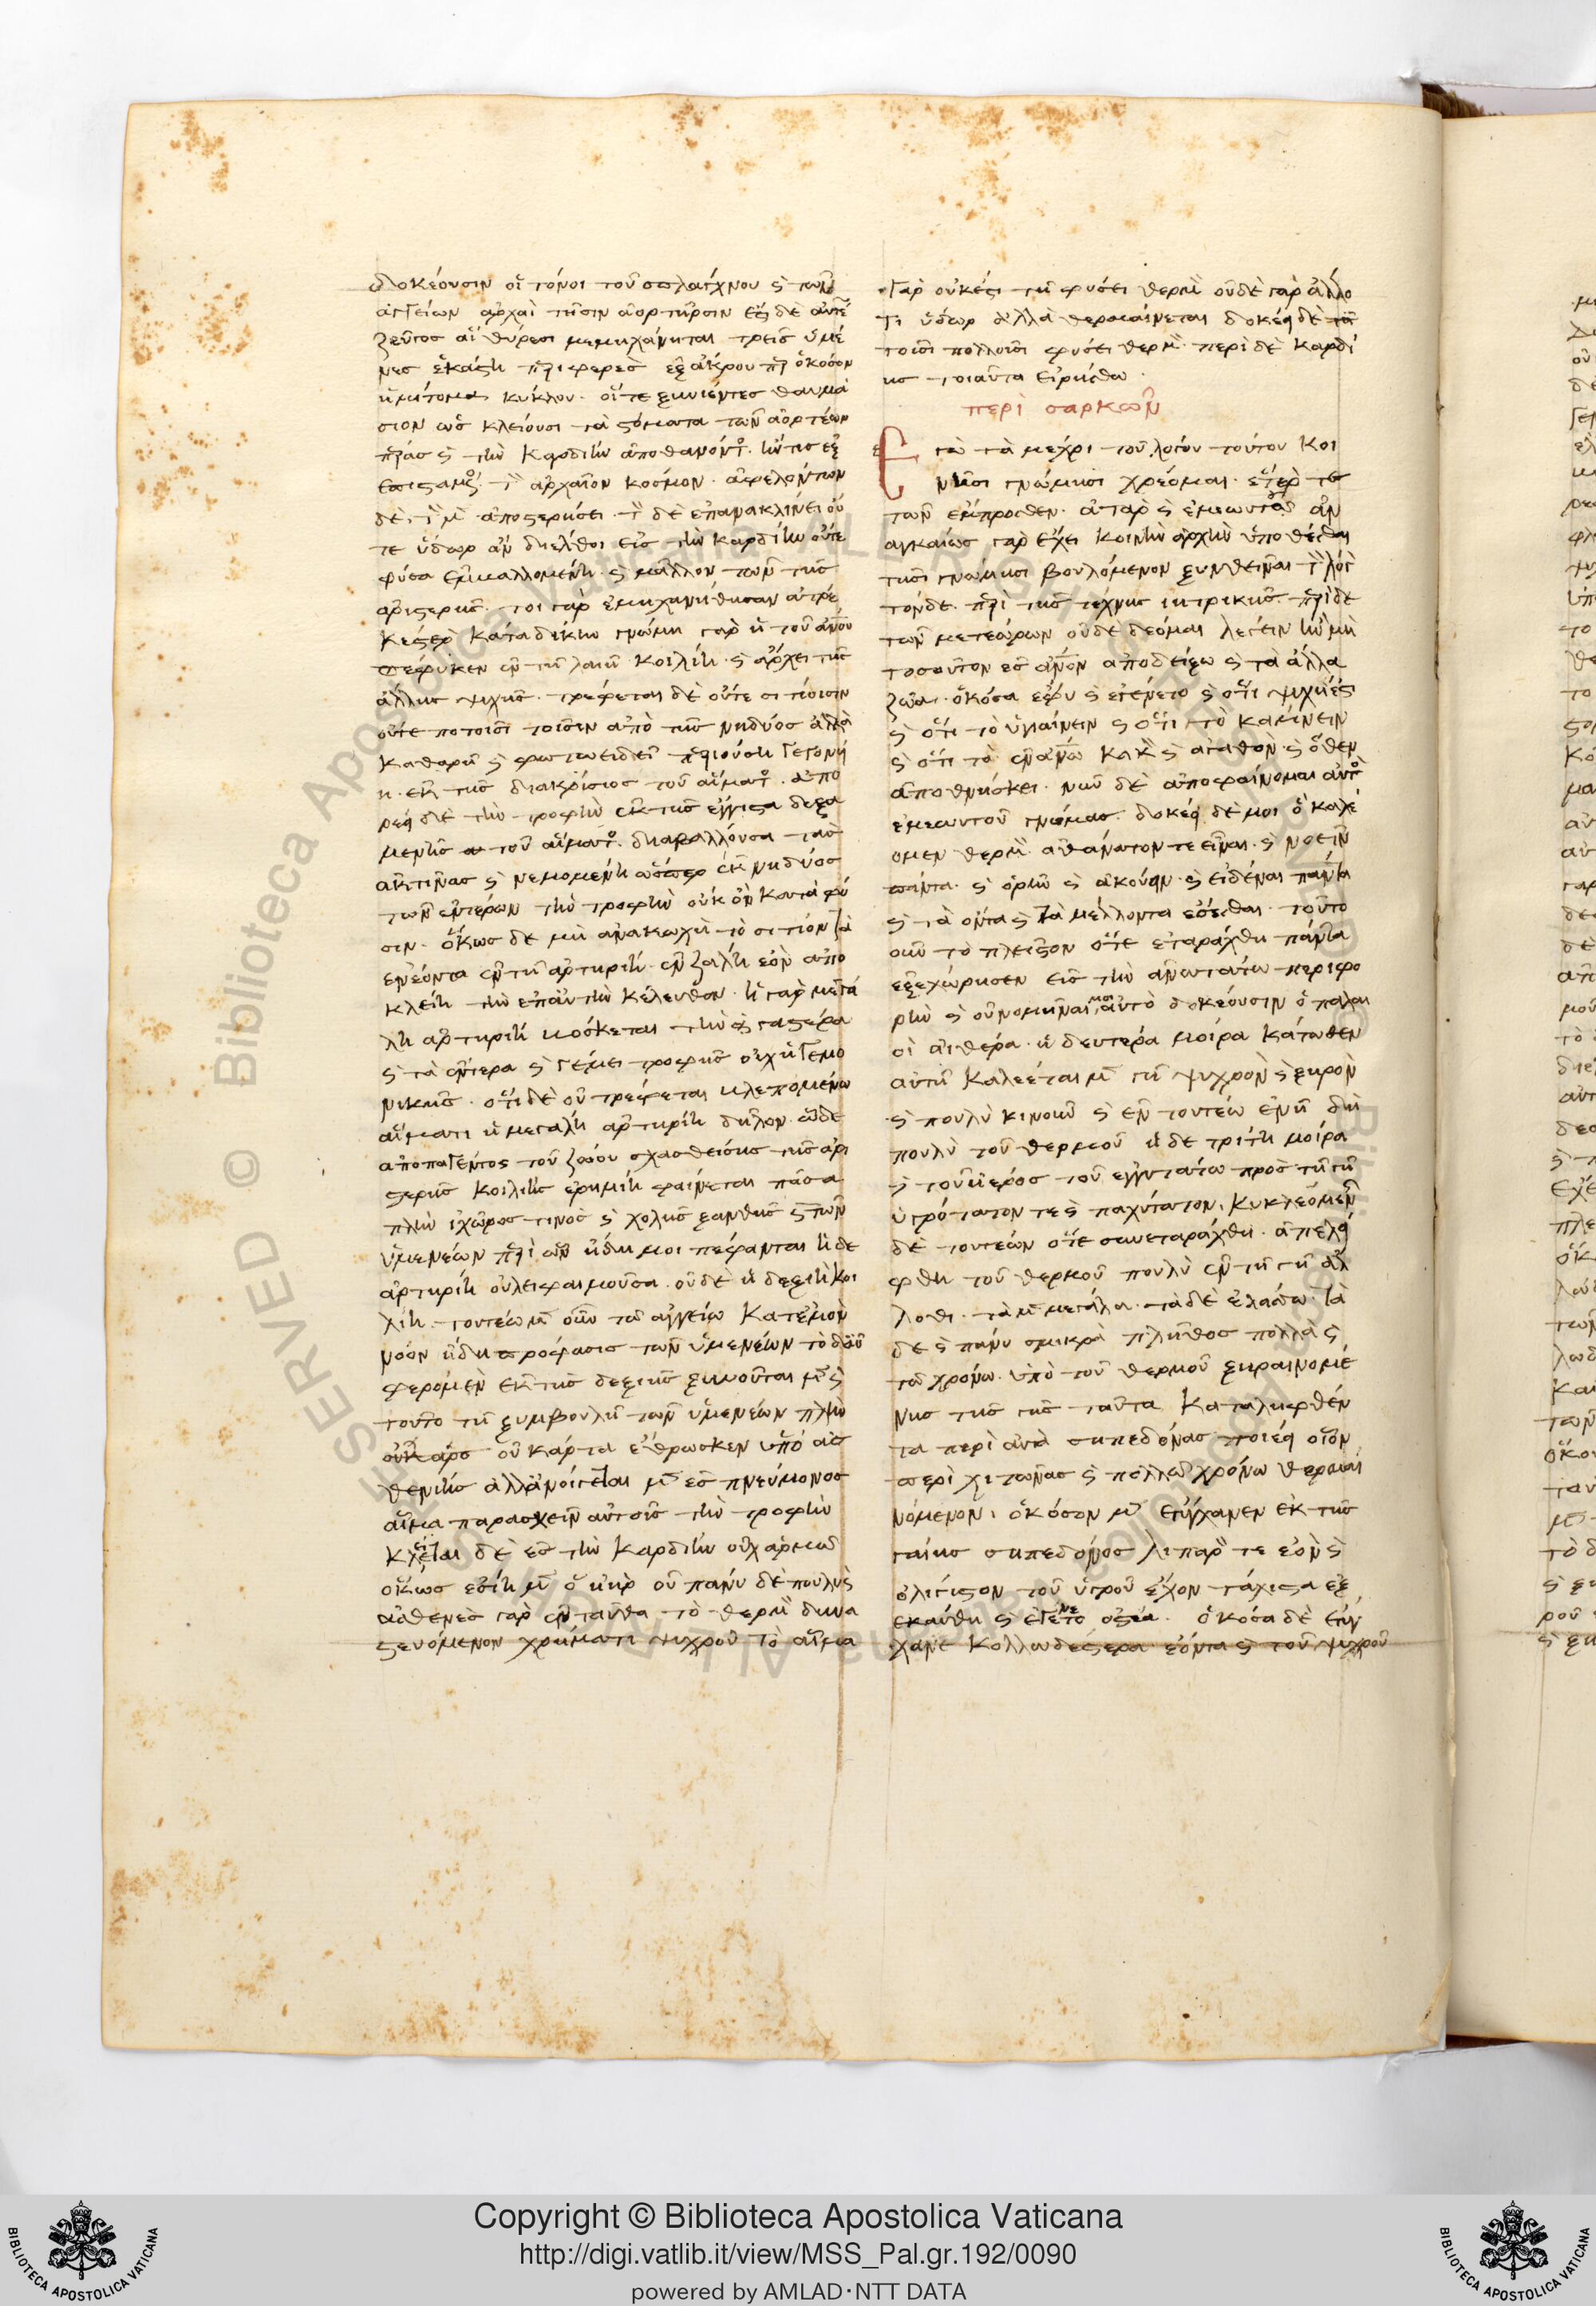 δοκέουσιν οἱ τόνοι τοῦ σπλάγχνου ϛ τῶν
ἀγγείων ἀρχαὶ τῆσιν ἀορτῆρσιν ἔϛι δὲ αὐτέ
ζεῦγος αἷ θύρεσι μεμηχάνηται τρεῖς ὑμέ
νες ἑκάϛη περιφερὲς ἐξ ἄκρου περ ὁκόσον
ἡμίτομα κύκλου. οἵ τε ξυνιέντες θαυμά
σιον ὡς κλείουσι τὰ ϛόματα τῶν ἀορτέων
πέρας ϛ τὴν καρδίην ἀποθανόντος. ἤν τις ἐξ
ἐπιϛάμενος τὸν ἀρχαῖον κόσμον. ἀφελόντων
δὲ, τὸν μὲν ἀποϛερήσει. τὸν δὲ ἐπανακλίνει οὔ
τε ὕδωρ ἂν διελθοι εἰς τὴν καρδίην οὔτε
φύσα ἐμβαλλομένη. ϛ μᾶλλον τῶν τῆς
ἀριϛερῆς. τοι γὰρ ἐμηχανήθησαν ἀτρε
κέϛερον κατὰ δίκην γνώμη γὰρ ἡ τοῦ ἀνου
πέφυκεν ἐν τῆ λαιῆ κοιλίη. ϛ ἄρχει τῆς
ἄλλης ψυχῆς. τρέφεται δὲ οὔτε σιτίοισιν
οὔτε ποτοῖσι τοῖσιν ἀπὸ τῆς νηδύος ἀλλὰ
καθαρῆ ϛ φωτωειδεῖ περιούση γεγονύ
η. ἐκ τῆς διακρίσιος τοῦ αἵματος. εὐπο
ρέει δὲ τὴν τροφὴν ἐκ τῆς ἔγγιϛα δεξα
μενῆς τοῦ αἵματος. διαβάλλουσα τὰς
ἀκτῖνας ϛ νεμομένη ὥσπερ ἐκ νηδύος
τῶν ἐντέρων τὴν τροφὴν οὐκ ὂν κατὰ φύ
σιν. ὅκως δὲ μὴ ἀνακωχῆ τὸ σιτίον τὰ
ἐνεόντα ἐν τῆ ἀρτηρίη. ἐν ζάλη ἐὸν ἀπο
κλείη τὴν ἐπ' αὐτὴν κέλευθον. ἡ γὰρ μεγά
λη ἀρτηρίη βόσκεται τὴν γαϛέρα
ϛ τὰ ἔντερα ϛ γέμει τροφῆς οὐχ ἡγεμο
νικῆς. ὅτι δὲ οὐ τρέφεται βλεπομένω
αἵματι ἡ μεγάλη ἀρτηρίη δῆλον ὧδε
ἀποπαγέντος τοῦ ζώου σχασθείσης τῆς ἀρι
ϛερῆς κοιλίης ἐρημίη φαίνεται πᾶσα
πλὴν ἰχῶρος τινὸς ϛ χολῆς ξανθῆς ϛ τῶν
ὑμενέων περὶ ὧν ἤδη μοι πέφανται ἡ δὲ
ἀρτηρίη οὐ λειφαιμοῦσα. οὐδὲ ἡ δεξιὴ κοι
λίη. τουτέω μὲν οὖν τῶ ἀγγείω κατ' ἐμὸν
νόον ἥδη πρόφασις τῶν ὑμενέων τὸ δ' αὖ
φερόμενον ἐκ τῆς δεξιῆς ξυμοῦται μὲν ϛ
τοῦτο τῆ ξυμβουλῆ τῶν ὑμενέων πλὴν
οὐ κάρτα ἔθρωσκεν ὑπὸ ἀσ
θενίης ἀλλ' ἀνοίγεται μὲν ἐς πνεύμονος
αἷμα παρασχεῖν αὐτοῖς τὴν τροφὴν
κλείεται δὲ ἐς τὴν καρδίην οὐχ ἁρμῶ
ὅκως ἐσίη μὲν ὁ ἠὴρ οὐ πάνυ δὲ πουλὺς
ἀσθενὲς γὰρ ἐνταῦθα τὸ θερμὸν δυνα
ϛευόμενον χρήματι ψυχροῦ τὸ αἷμα
γὰρ οὐκ ἔϛι τῆ φύσει θερμὸν οὐδὲ γὰρ ἄλλο
τι ὕδωρ ἀλλὰ θερμαίνεται δοκέει δὲ
τοῖσι πολλοῖσι φύσει θερμόν. περὶ δὲ καρδί
ης τοιαῦτα εἰρήσθω.
περὶ σαρκῶν
Ἐγὼ τὰ μέχρι τοῦ λόγου τούτου κοι
νῆσι γνώμησι χρέομαι. ἑτέρων τε
τῶν ἔμπροσθεν. ἀτὰρ ϛ ἐμεωυτοῦ ἀν
αγκαίως γὰρ ἔχει κοινὴν ἀρχὴν ὑποθέσθαι
τῆσι γνώμησι βουλόμενον ξυνθεῖναι τὸν λόγον
τόνδε. περὶ τῆς τέχνης ιητρικῆς. περὶ δὲ
τῶν μετεώρων οὐδὲ δέομαι λέγειν ἢν μὴ
τοσοῦτον ἐς ἄνον ἀποδείξω ϛ τὰ ἄλλα
ζῶα. ὁκόσα ἔφυ ϛ ἐγένετο ϛ ὅτι ψυχή ἐϛι
ϛ ὅτι τὸ ὑγιαίνειν ϛ ὅτι τὸ κάμνειν
ϛ ὅτι τὸ ἐν ἀνω κακὸν ϛ ἀγαθὸν. ϛ ὅθεν
ἀποθνήσκει. νῦν δὲ ἀποφαίνομαι αὐτὸς
ἐμεωυτοῦ γνώμας. δοκέει δὲ μοι ὃ καλέ
ομεν θερμὸν. ἀθάνατον τε εἶναι. ϛ νοεῖν
πάντα. ϛ ὁρῆν ϛ ἀκούειν. ϛ εἰδέναι πάντα
ϛ τὰ ὄντα ϛ τὰ μέλλοντα ἔσεσθαι. τοῦτο
οὖν τὸ πλεῖϛον ὅτε ἐταράχθη πάντα
ἐξεχώρησεν εἰς τὴν ἀνωτάτω περιφο
ρὴν ϛ οὐνομῆναί μοι αὐτὸ δοκέουσιν ὁ παλαι
οὶ αἰθέρα. ἡ δευτέρα μοίρα κάτωθεν
αὐτῆ καλέεται μὲν γῆ ψυχρὸν ϛ ξηρὸν
ϛ πουλὺ κινοῦν ϛ ἐν τουτέω ἐνῆ δὴ
πουλὺ τοῦ θερμοῦ ἡ δὲ τρίτη μοίρα
ϛ τοῦ ἠέρος τοῦ ἐγγυτάτω πρὸς τῆ γῆ
ὑγρότατον τε ϛ παχύτατον. κυκλεομένων
δὲ τουτέων ὅτε συνεταράχθη. ἀπελεί
φθη τοῦ θερμοῦ πουλὺ ἐν τῆ γῆ ἄλ
λοθι. τὰ μὲν μεγάλα. τὰ δὲ ἐλάσσω. τὰ
δὲ ϛ πάνυ σμικρὰ πλῆθος πολλὰ ϛ
τῶ χρόνω. ὑπὸ τοῦ θερμοῦ ξηραινομέ
νης τῆς γῆς ταῦτα καταληφθέν
τα περὶ αὐτὰ σηπεδόνας ποιέει οἷον
περὶ χιτῶνας ϛ πολλῶ χρόνω θερμαι
νόμενον. ὁκόσον μὲν ἐτύγχανεν ἐκ τῆς
γαίης σηπεδόνος λιπαρόν τε ἐὸν ϛ
ὀλίγιϛον τοῦ ὑγροῦ ἔχον τάχιϛα ἐξ
εκαύθη ϛ ἐγένετο ὀϛέα. ὁκόσα δὲ ἐτύγ
χανε κολλωδέϛερα ἐόντα ϛ τοῦ ψυχροῦ
Copyright © Biblioteca Apostolica Vaticana
http://digi.vatlib.it/view/MSS_Pal.gr.192/0090
powered by AMLAD·NTT DATA